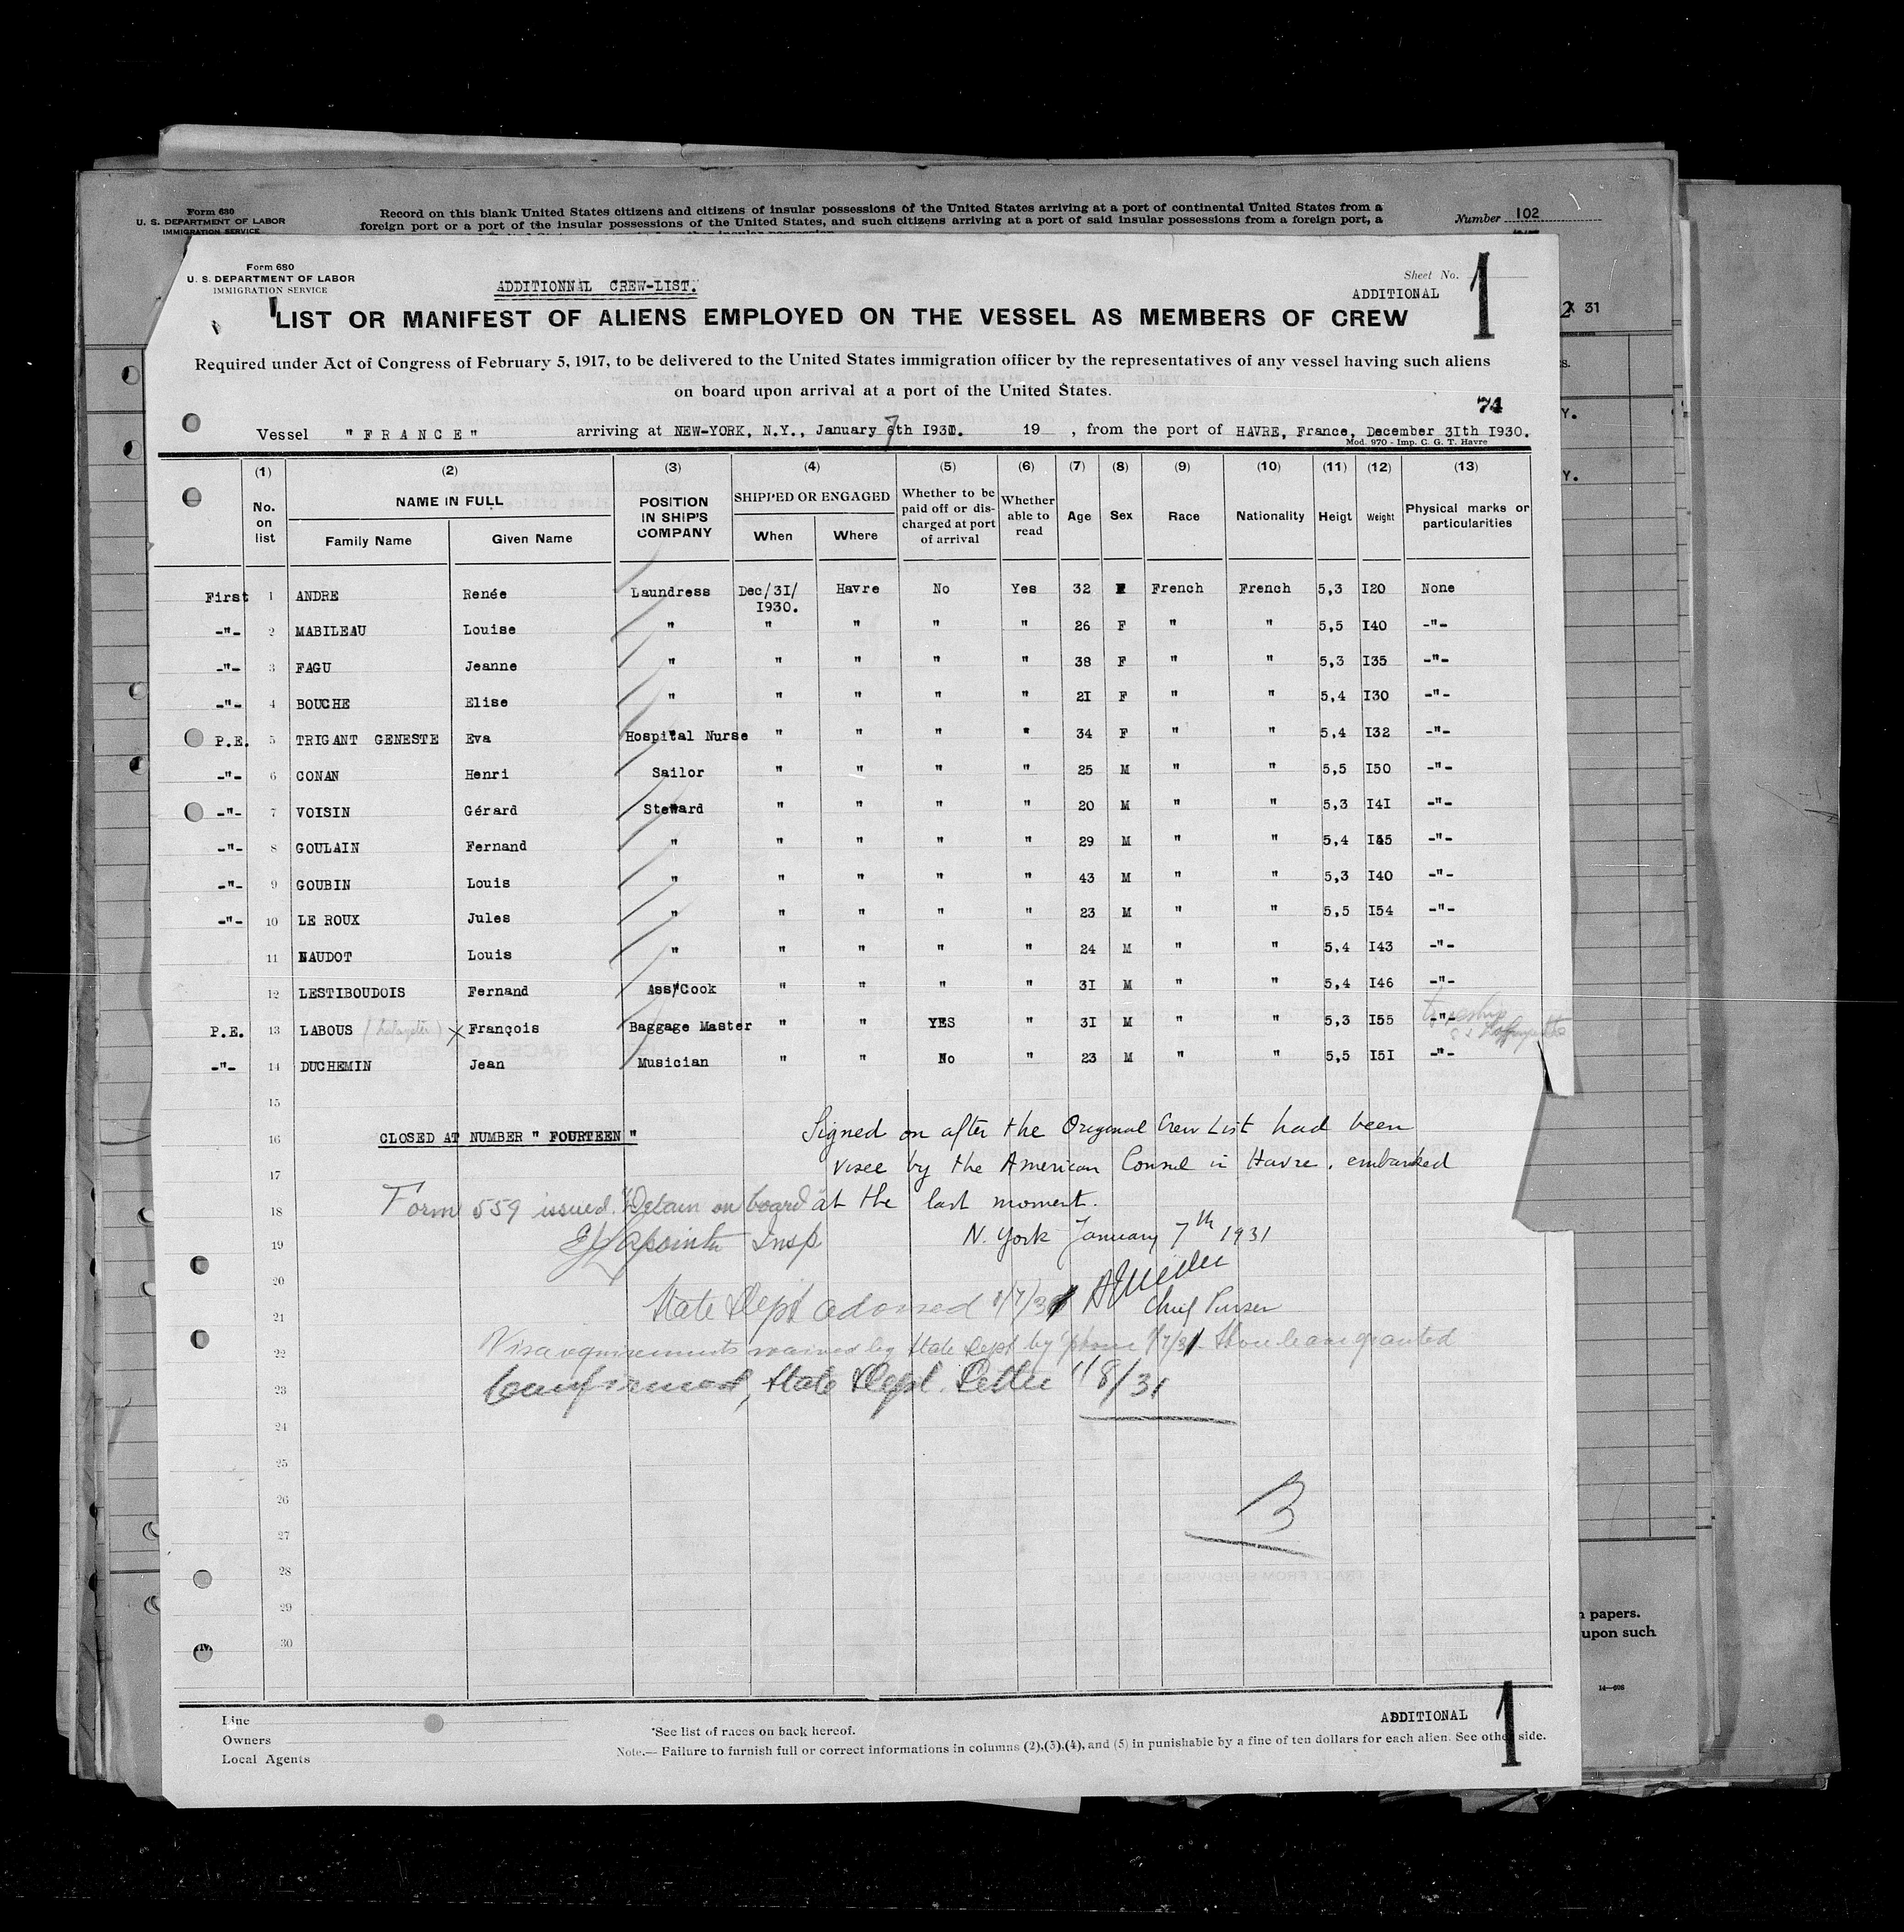 Form 630
U. S. DEPARTMENT OF LABOR
IMMIGRATION SERVICE
Record on this blank United States citizens and citizens of insular possessions of the United States arriving at a port of continental United States from a
foreign port or a port of the insular possessions of the United States, and such citizens arriving at a port of said insular possessions from a foreign port, a
Number 102
Form 680
U. S. DEPARTMENT OF LABOR
IMMIGRATION SERVICE
ADDITIONNAL CREW-LIST.
Sheet No. 1
ADDITIONAL
LIST OR MANIFEST OF ALIENS EMPLOYED ON THE VESSEL AS MEMBERS OF CREW
31
Required under Act of Congress of February 5, 1917, to be delivered to the United States immigration officer by the representatives of any vessel having such aliens
on board upon arrival at a port of the United States.
74
Vessel "FRANCE" arriving at NEW-YORK, N.Y., January 7th I931. 19 , from the port of HAVRE, France, December 3Ith I930.
Mod. 970 - Imp. C. G. T. Havre
(1) (2) (3) (4) (5) (6) (7) (8) (9) (10) (11) (12) (13)
No. on list NAME IN FULL Family Name Given Name POSITION IN SHIP'S COMPANY SHIPPED OR ENGAGED When Where Whether to be paid off or discharged at port of arrival Whether able to read Age Sex Race Nationality Heigt Weight Physical marks or particularities
First 1 ANDRE Renée Laundress Dec/3I/ I930. Havre No Yes 32 F French French 5,3 I20 None
-"- 2 MABILEAU Louise " " " " " 26 F " " 5,5 I40 -"-
-"- 3 FAGU Jeanne " " " " " 38 F " " 5,3 I35 -"-
-"- 4 BOUCHE Elise " " " " " 2I F " " 5,4 I30 -"-
P.E. 5 TRIGANT GENESTE Eva Hospital Nurse " " " " 34 F " " 5,4 I32 -"-
-"- 6 CONAN Henri Sailor " " " " 25 M " " 5,5 I50 -"-
-"- 7 VOISIN Gérard Steward " " " " 20 M " " 5,3 I4I -"-
-"- 8 GOULAIN Fernand " " " " " 29 M " " 5,4 I45 -"-
-"- 9 GOUBIN Louis " " " " " 43 M " " 5,3 I40 -"-
-"- 10 LE ROUX Jules " " " " " 23 M " " 5,5 I54 -"-
11 NAUDOT Louis " " " " " 24 M " " 5,4 I43 -"-
12 LESTIBOUDOIS Fernand Ass/Cook " " " " 3I M " " 5,4 I46 -"-
P.E. 13 LABOUS x François Baggage Master " " YES " 3I M " " 5,3 I55 -"-
-"- 14 DUCHEMIN Jean Musician " " No " 23 M " " 5,5 I5I -"-
15
16 CLOSED AT NUMBER " FOURTEEN " Signed on after the Original Crew List had been
17 visee by the American Consul in Havre. embarked
18 Form 559 issued. "Detain on board" at the last moment.
19 Insp N. York January 7th 1931
20
21 State Dept advised 1/7/31 Chief Purser
22 Visa requirements waived by State Dept by phone 1/7/31. Shore leave granted
23 Confirmed, State Dept. Letter 1/8/31
24
25
26
27
28
29
30
papers.
upon such
14-608
Line
Owners
Local Agents
*See list of races on back hereof.
Note.— Failure to furnish full or correct informations in columns (2),(3),(4), and (5) in punishable by a fine of ten dollars for each alien. See other side.
ADDITIONAL 1